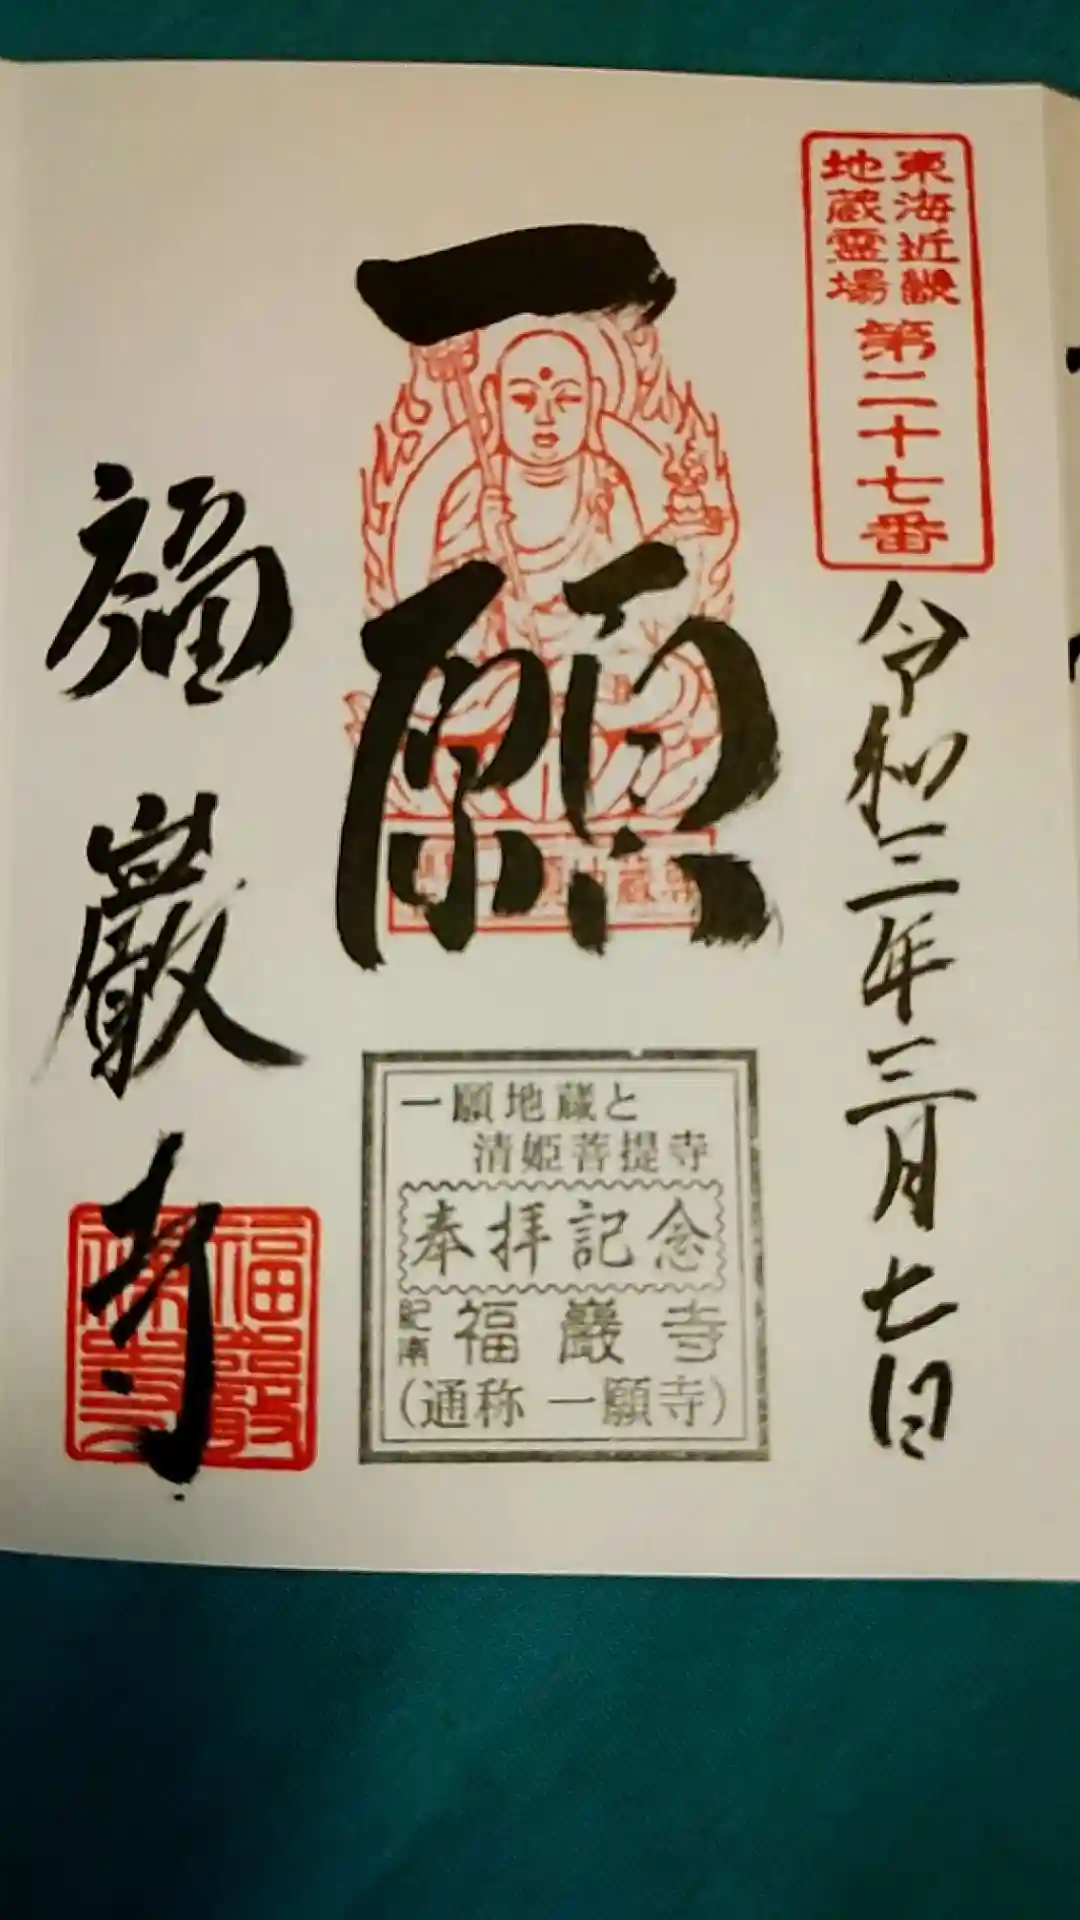 東海近畿
地蔵霊場
第二十七番
令和三年三月七日
一願
一願地蔵尊
福巖寺
福巖
禅寺
一願地蔵と
清姫菩提寺
奉拝記念
紀南 福巖寺
(通称 一願寺)